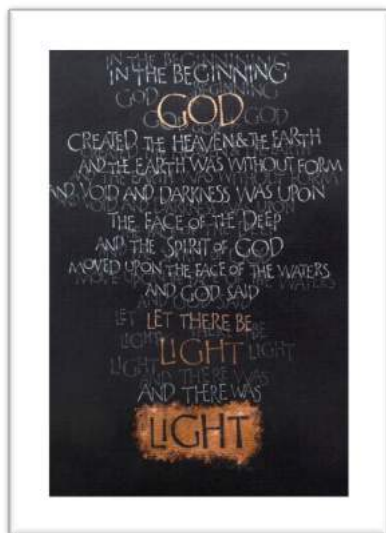 IN THE BEGINNING
IN THE BEGINNING
GOD BEGINNING
GOD
GOD GOD
CREATED THE HEAVEN & THE EARTH
AND THE EARTH WAS WITHOUT FORM
AND VOID AND DARKNESS WAS UPON
THE FACE OF THE DEEP
AND THE SPIRIT OF GOD
MOVED UPON THE FACE OF THE WATERS
AND GOD SAID
LET THERE BE
LIGHT
LIGHT LIGHT
AND THERE WAS
LIGHT